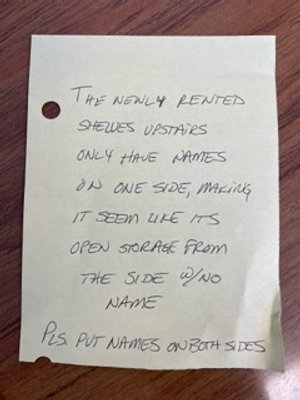 THE NEWLY RENTED
SHELVES UPSTAIRS
ONLY HAVE NAMES
ON ONE SIDE, MAKING
IT SEEM LIKE ITS
OPEN STORAGE FROM
THE SIDE W/NO
NAME
PLS. PUT NAMES ON BOTH SIDES